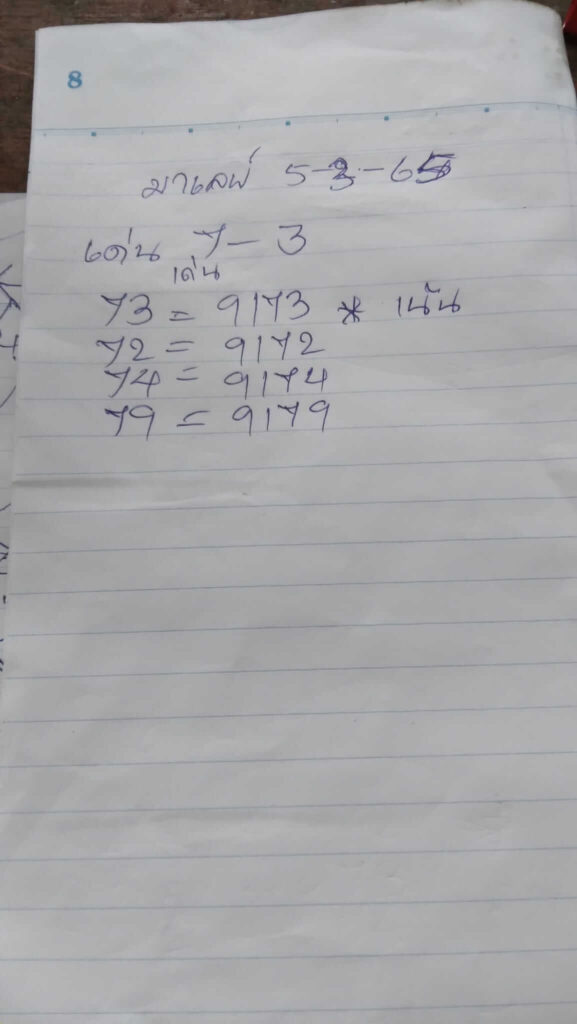 8
มาเลย์ 5-3-65
เด่น 7-3
เด่น
73 = 9173 * เน้น
72 = 9172
74 = 9174
79 = 9179